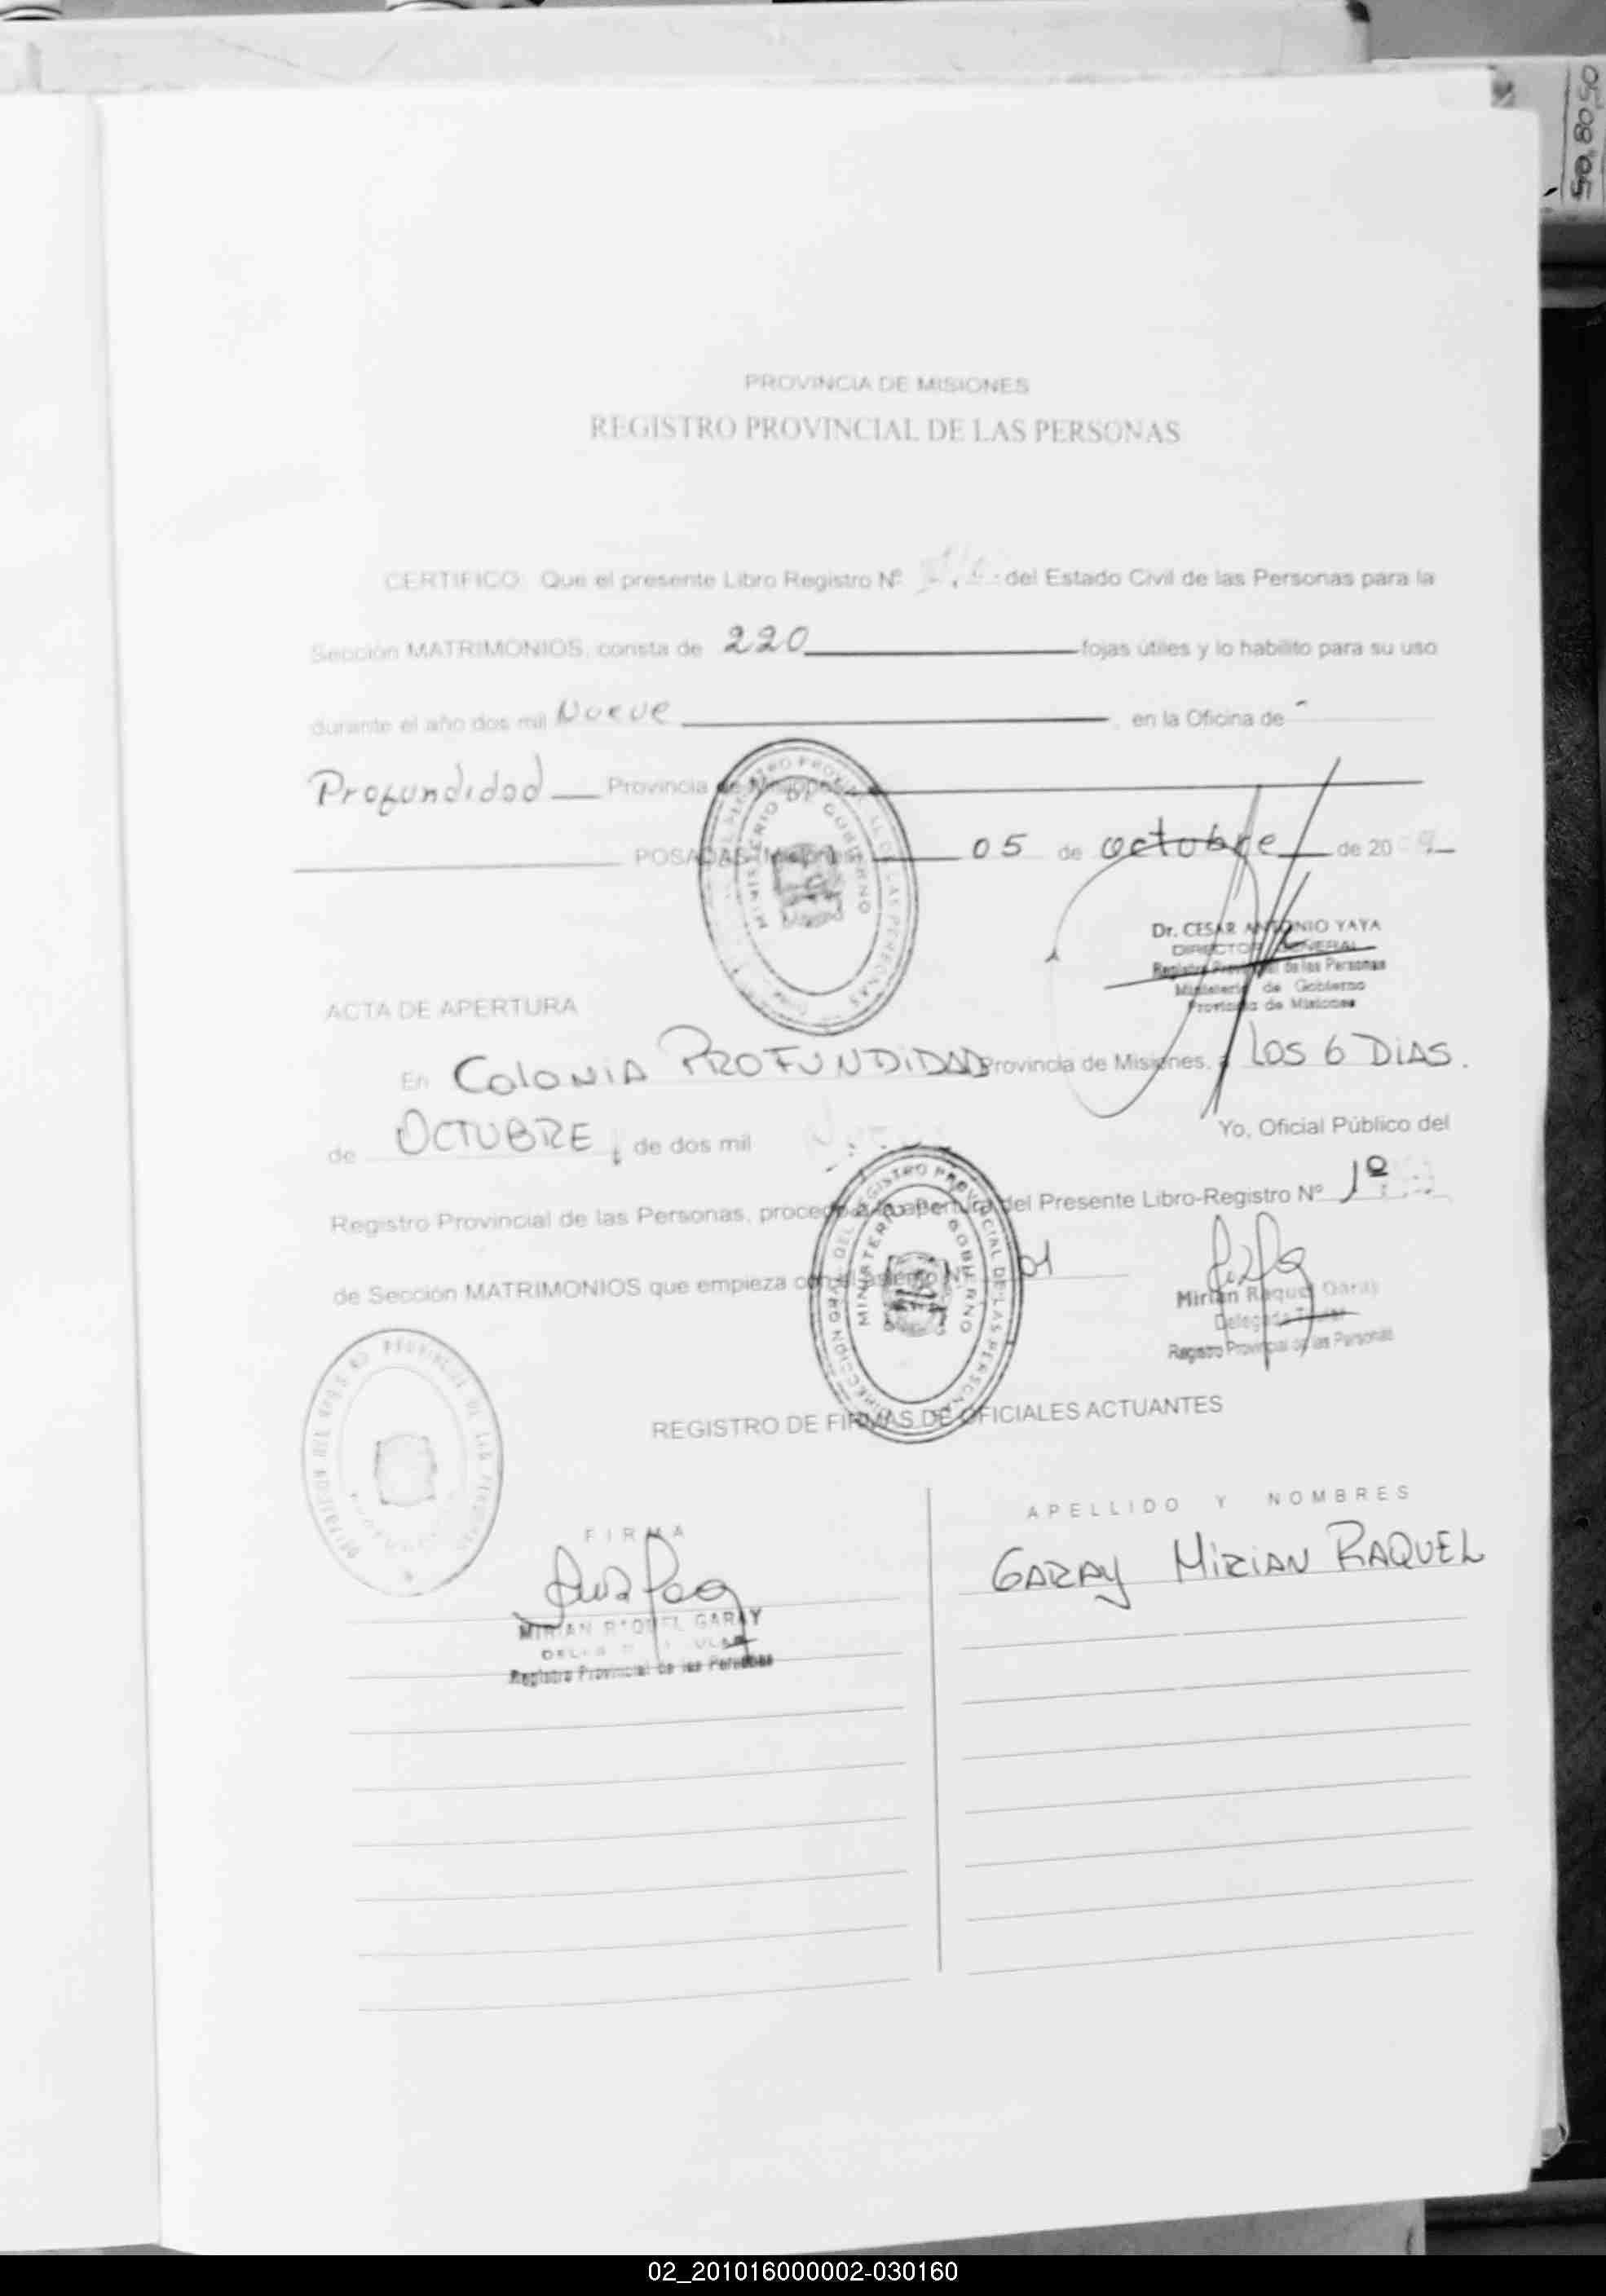 50.80.50
PROVINCIA DE MISIONES
REGISTRO PROVINCIAL DE LAS PERSONAS
CERTIFICO: Que el presente Libro Registro Nº del Estado Civil de las Personas para la
Sección MATRIMONIOS, consta de 220 fojas útiles y lo habilito para su uso
durante el año dos mil Nueve en la Oficina de
Profundidad Provincia de Misiones
POSADAS (Misiones) 05 de octubre de 20 9
Dr. CESAR ANTONIO YAYA
DIRECTOR GENERAL
Registro Provincial de las Personas
Ministerio de Gobierno
Provincia de Misiones
ACTA DE APERTURA
En COLONIA PROFUNDIDAD Provincia de Misiones, a LOS 6 DIAS.
de OCTUBRE, de dos mil Yo, Oficial Público del
Registro Provincial de las Personas, procedo a la apertura del Presente Libro-Registro Nº 1º
de Sección MATRIMONIOS que empieza con el asiento Nº 01
Mirian Raquel Garay
Delegada Titular
Registro Provincial de las Personas
DIRECCION GRAL. DEL REGISTRO PROVINCIAL DE LAS PERSONAS
MINISTERIO DE GOBIERNO
REGISTRO DE FIRMAS DE OFICIALES ACTUANTES
FIRMA
APELLIDO Y NOMBRES
GARAY MIRIAN RAQUEL
MIRIAN RAQUEL GARAY
Registro Provincial de las Personas
02_201016000002-030160